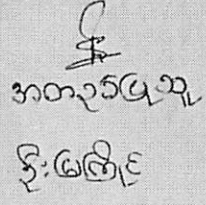 အတည်ပြုသူ
ဦးမြကြိုင်